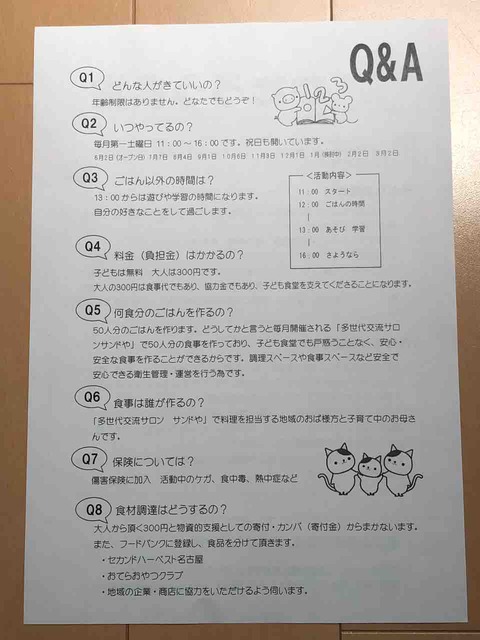 Q&A
Q1 どんな人がきていいの？
年齢制限はありません。どなたでもどうぞ！
123
Q2 いつやってるの？
毎月第一土曜日 11：00～16：00です。祝日も開いています。
6月2日（オープン日） 7月7日 8月4日 9月1日 10月6日 11月3日 12月1日 1月（検討中） 2月2日 3月2日
Q3 ごはん以外の時間は？
13：00からは遊びや学習の時間になります。
自分の好きなことをして過ごします。
＜活動内容＞
11：00 スタート
12：00 ごはんの時間
13：00 あそび 学習
16：00 さようなら
Q4 料金（負担金）はかかるの？
子どもは無料 大人は300円です。
大人の300円は食事代でもあり、協力金でもあり、子ども食堂を支えてくださることになります。
Q5 何食分のごはんを作るの？
50人分のごはんを作ります。どうしてかと言うと毎月開催される「多世代交流サロ
ンサンドや」で50人分の食事を作っており、子ども食堂でも戸惑うことなく、安心・
安全な食事を作ることができるからです。調理スペースや食事スペースなど安全で
安心できる衛生管理・運営を行う為です。
Q6 食事は誰が作るの？
「多世代交流サロン サンドや」で料理を担当する地域のおば様方と子育て中のお母さ
んです。
Q7 保険については？
傷害保険に加入 活動中のケガ、食中毒、熱中症など
Q8 食材調達はどうするの？
大人から頂く300円と物資的支援としての寄付・カンパ（寄付金）からまかないます。
また、フードバンクに登録し、食品を分けて頂きます。
・セカンドハーベスト名古屋
・おてらおやつクラブ
・地域の企業・商店に協力をいただけるよう伺います。